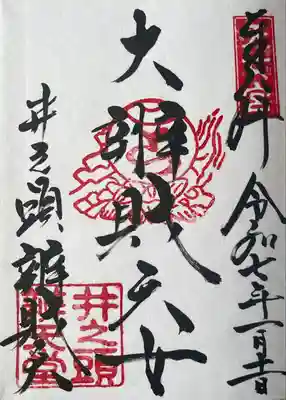 奉拝 令和七年一月十一日
大辨財天女
井之頭辨財天
井之頭
辨天堂